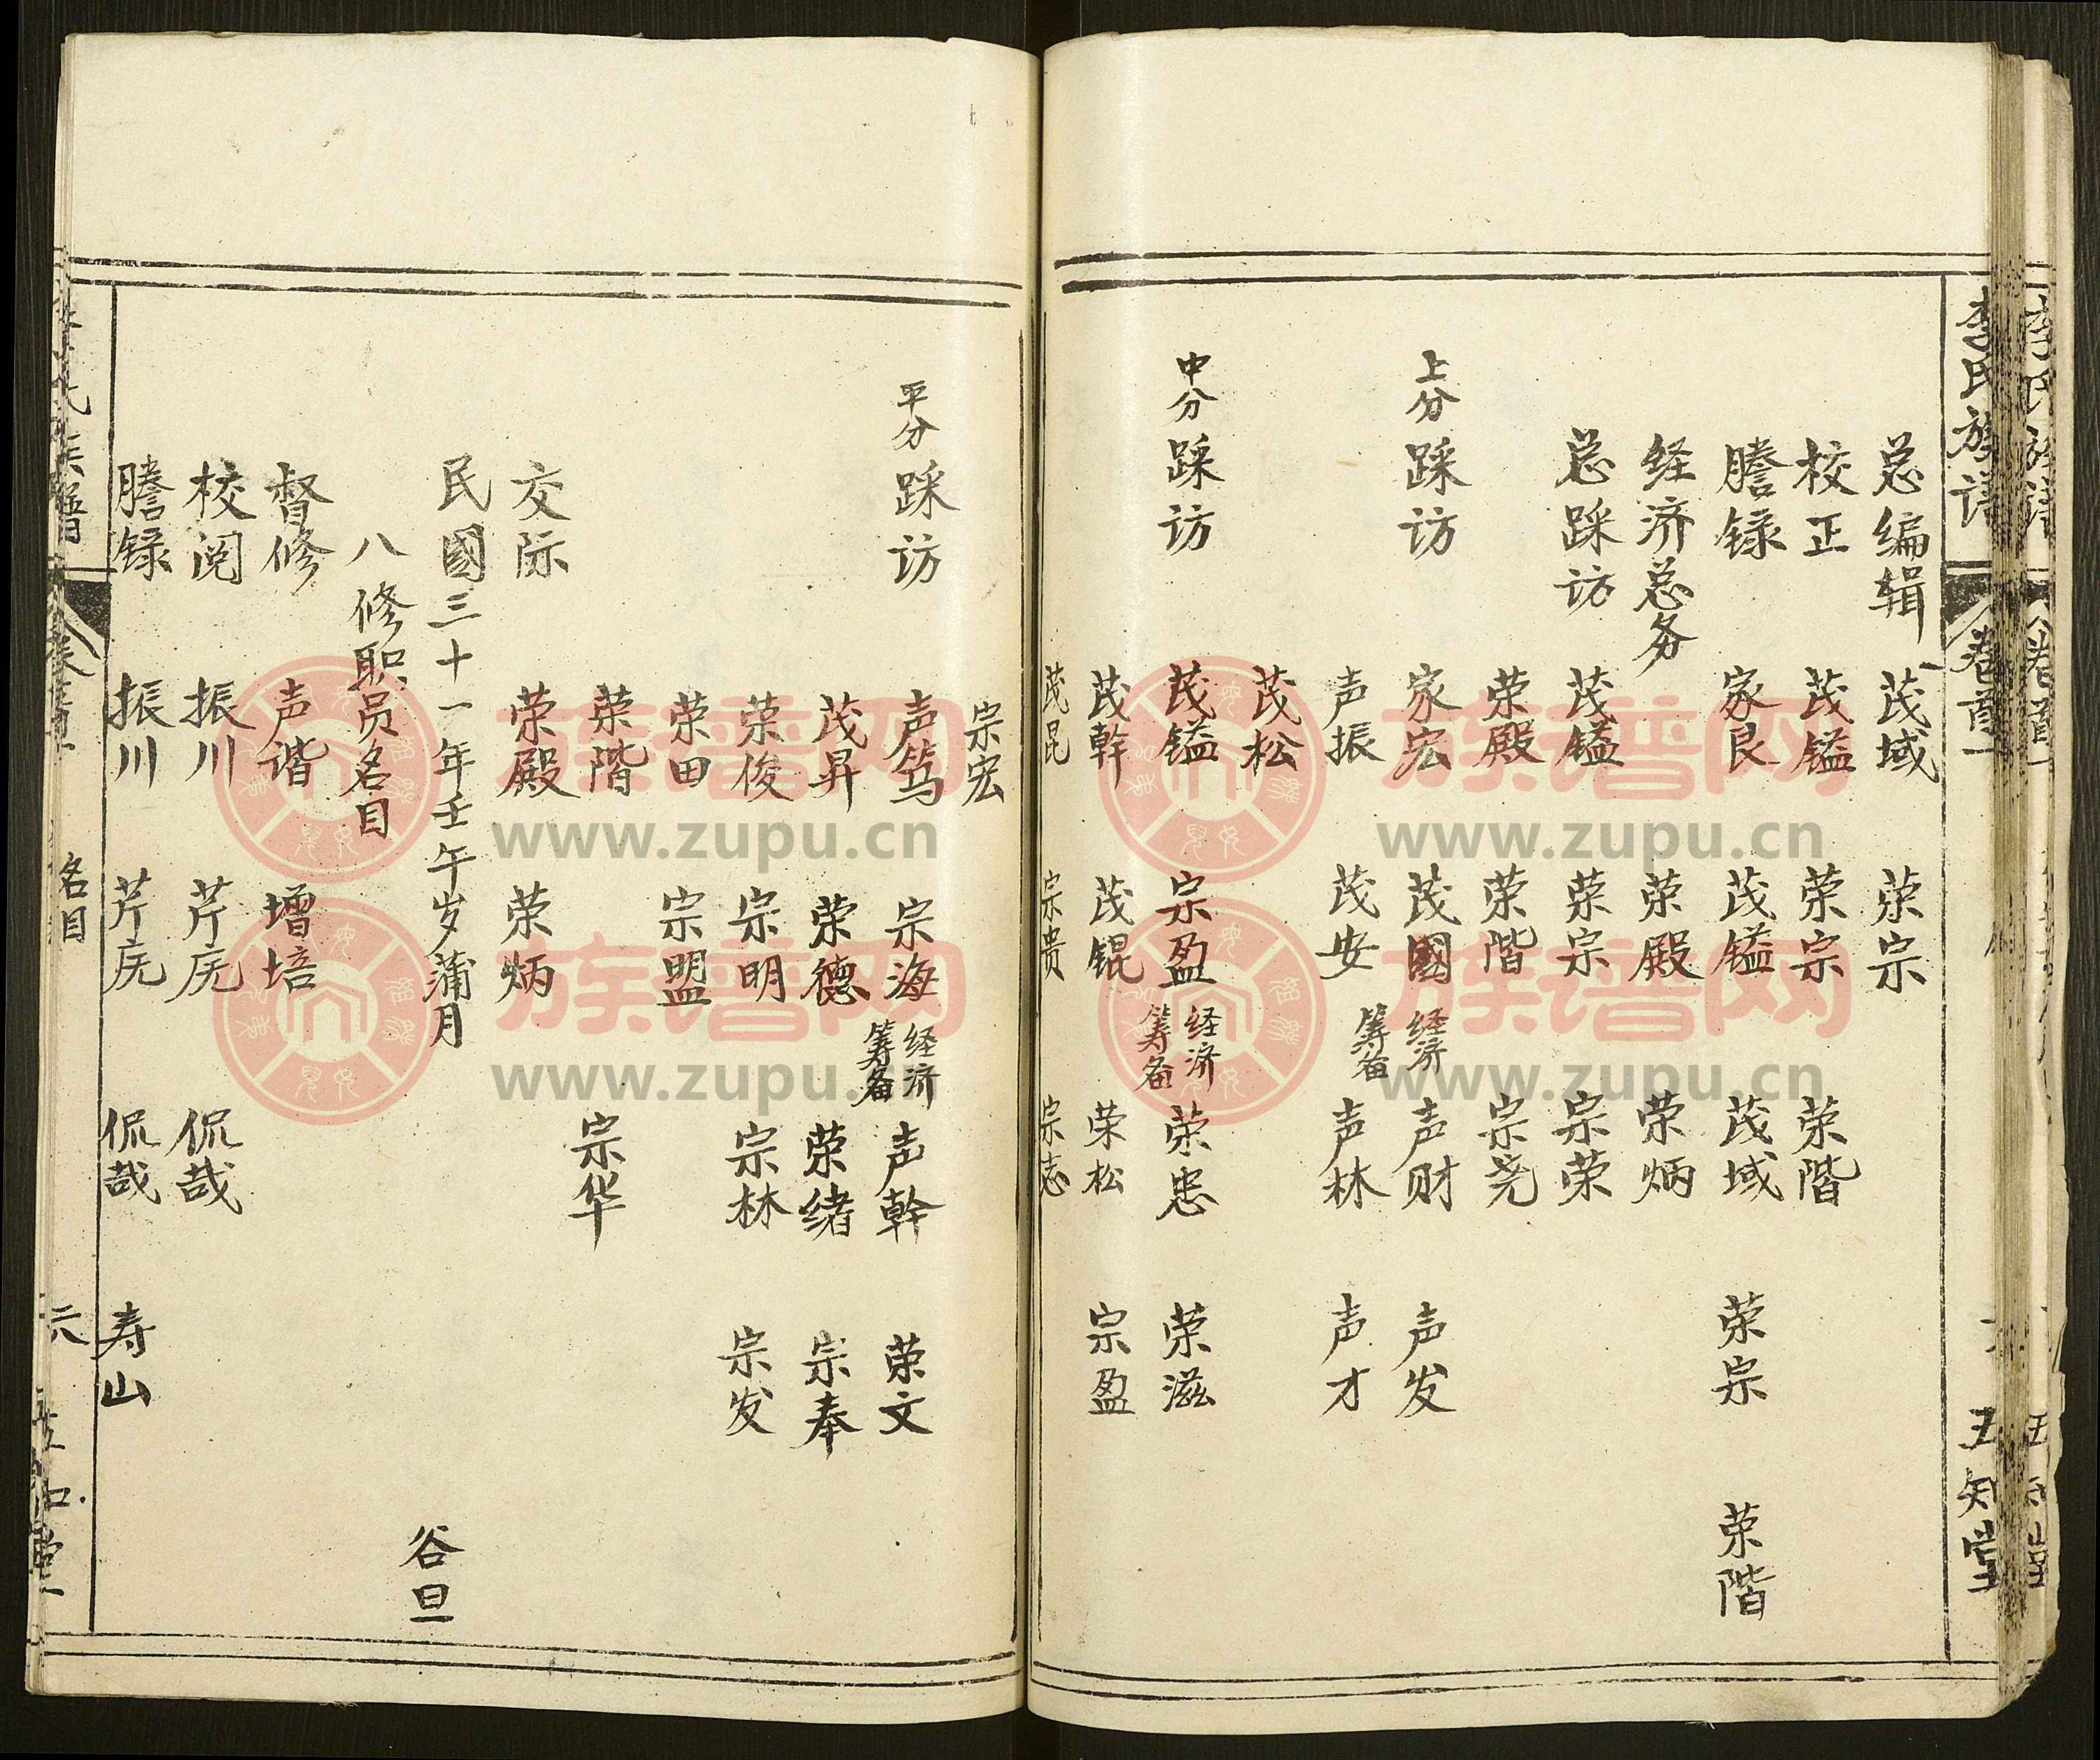 李氏族谱 卷首 五知堂
总编辑 茂域 荣宗
校正 茂镒 荣宗 荣階
謄録 家良 茂镒 茂域 荣宗 荣階
经济总务 荣殿 荣炳
总踩访 茂镒 荣宗 宗荣
荣殿 荣階 宗尧
上分踩访 家宏 茂國 经济 声财 声发
声振 茂安 筹备 声林 声才
茂松
中分踩访 茂镒 宗盈 经济筹备 荣忠 荣滋
茂幹 茂锟 荣松 宗盈
茂昆 宗贵 宗志
宗宏
平分踩访 声笃 宗海 经济筹备 声幹 荣文
茂昇 荣德 荣绪 宗奉
荣俊 宗明 宗林 宗发
荣田 宗盟
荣階 宗华
交际 荣殿 荣炳
民國三十一年壬午岁蒲月 谷旦
八修职员名目
督修 声谐 增培
校阅 振川 芹 侃哉
謄録 振川 芹 侃哉 寿山
名目 六
族谱网
www.zupu.cn
族谱网
www.zupu.cn
族谱网
www.zupu.cn
族谱网
www.zupu.cn